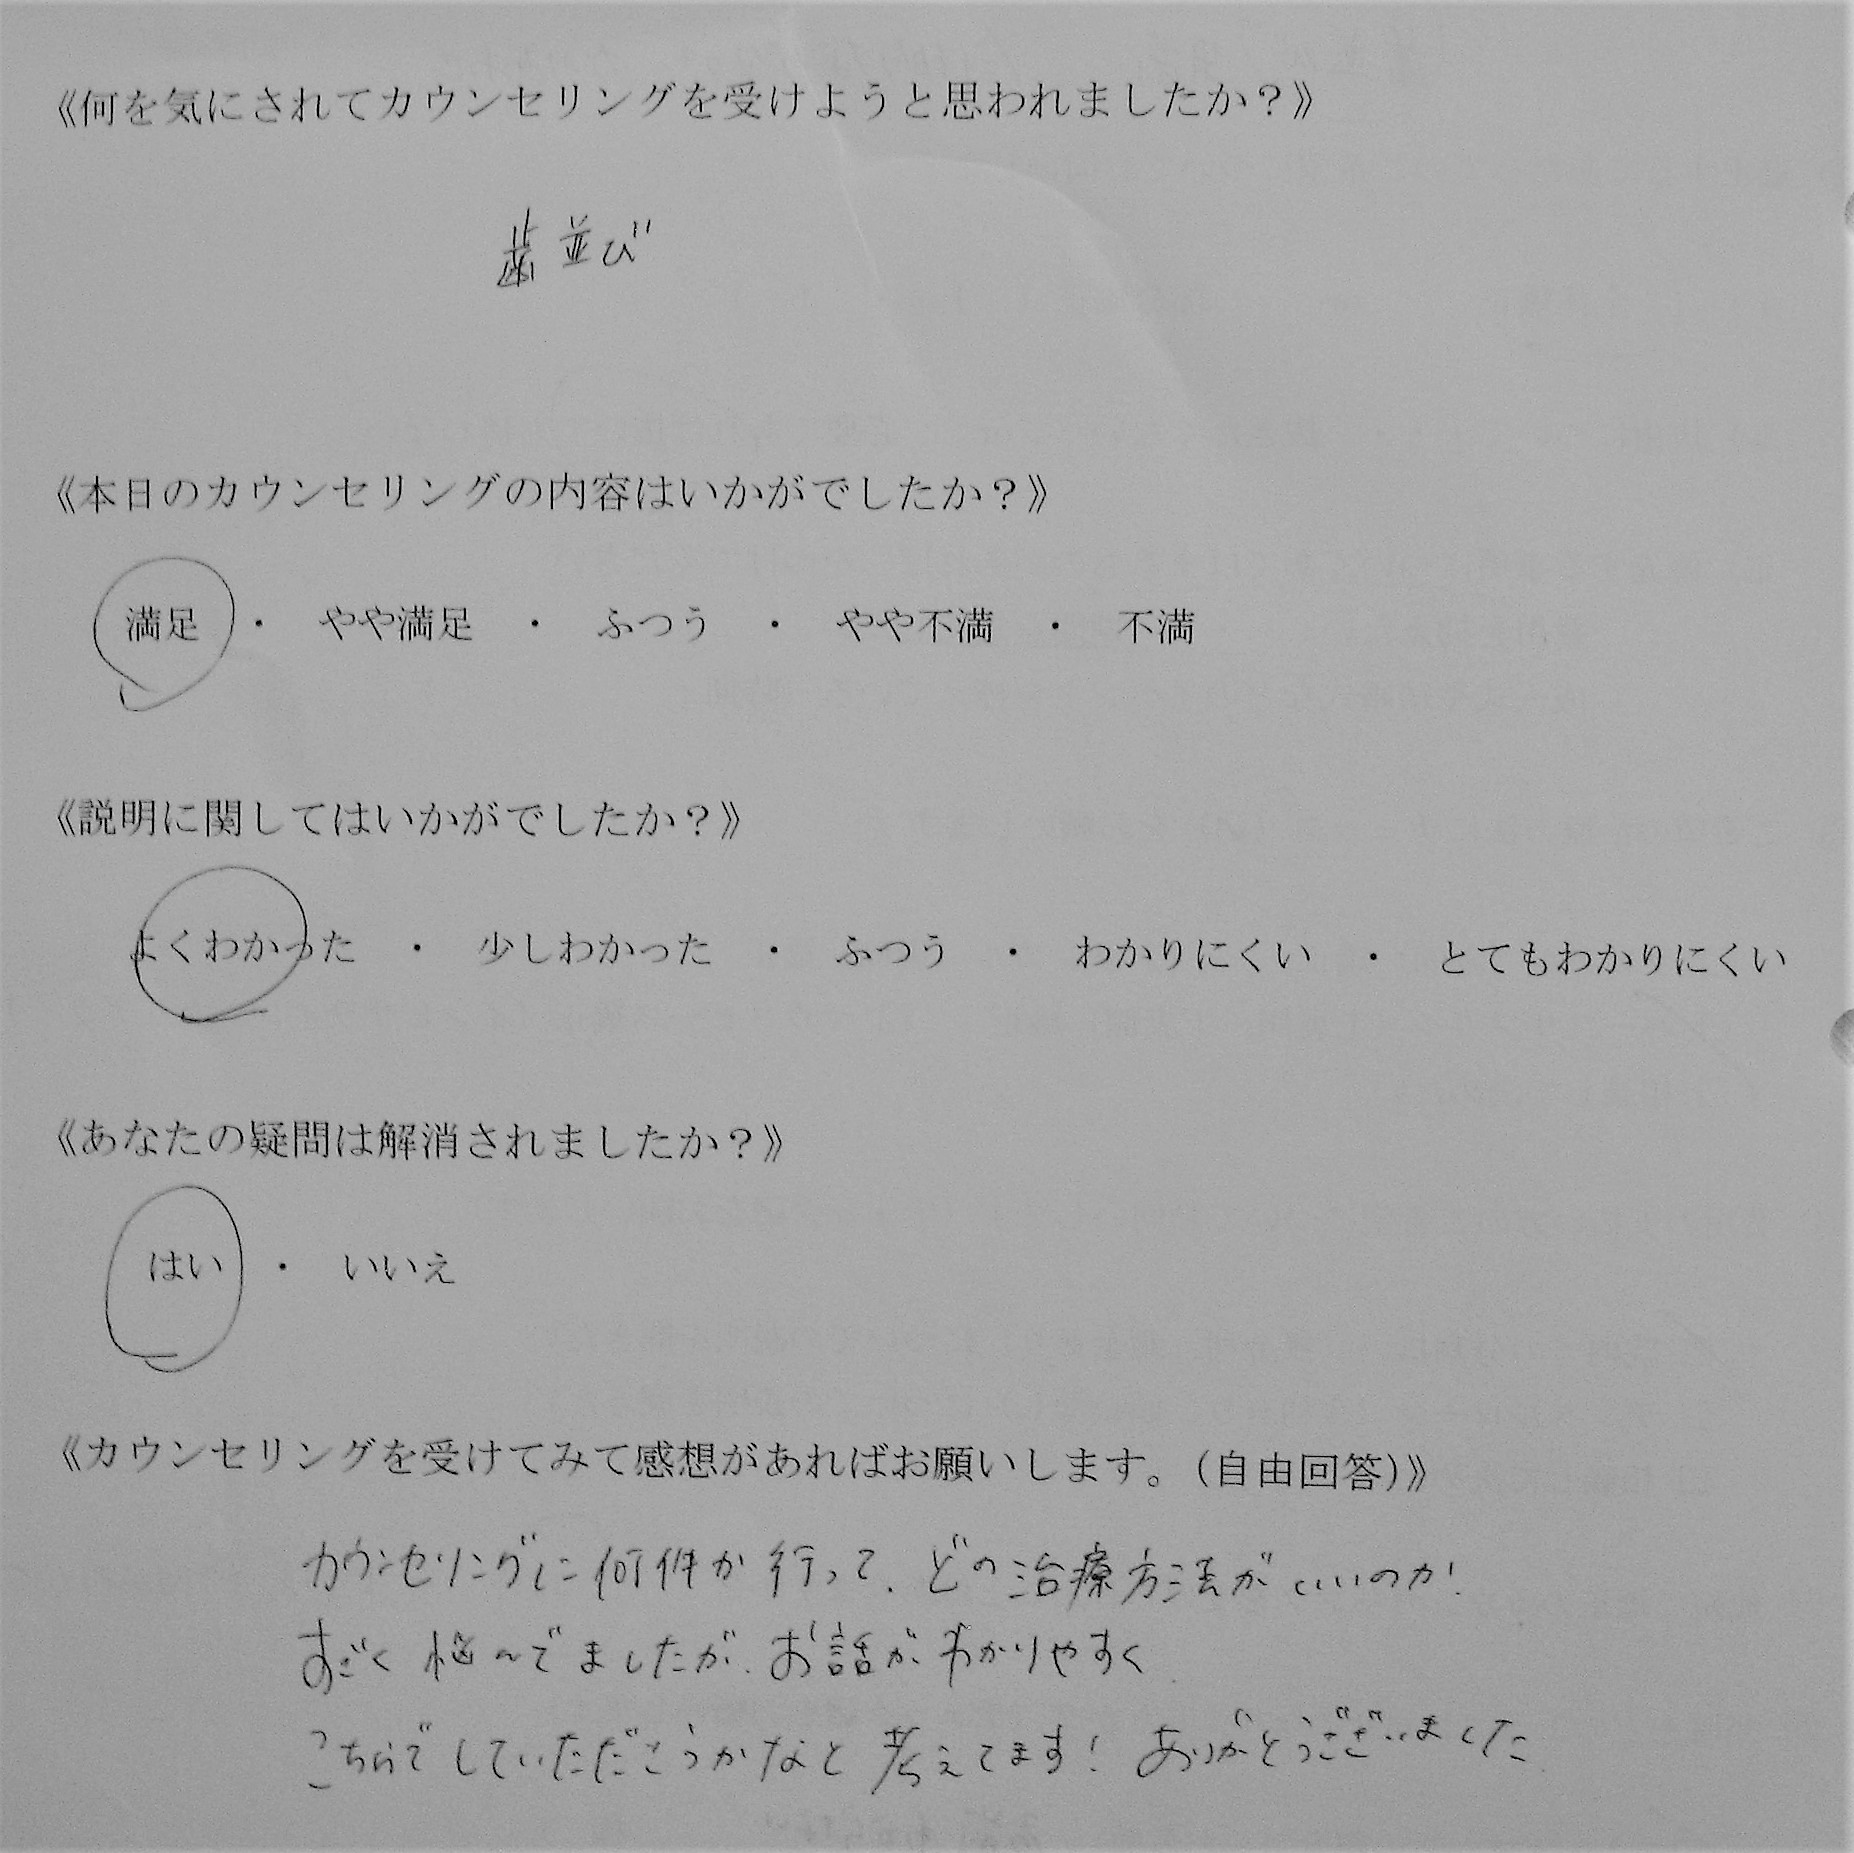 《何を気にされてカウンセリングを受けようと思われましたか？》
歯並び
《本日のカウンセリングの内容はいかがでしたか？》
満足 ・ やや満足 ・ ふつう ・ やや不満 ・ 不満
《説明に関してはいかがでしたか？》
よくわかった ・ 少しわかった ・ ふつう ・ わかりにくい ・ とてもわかりにくい
《あなたの疑問は解消されましたか？》
はい ・ いいえ
《カウンセリングを受けてみて感想があればお願いします。（自由回答）》
カウンセリングに何件か行って、どの治療方法がいいのか!
すごく悩んでましたが、お話がわかりやすく
こちらでしていただこうかなと考えてます! ありがとうございました